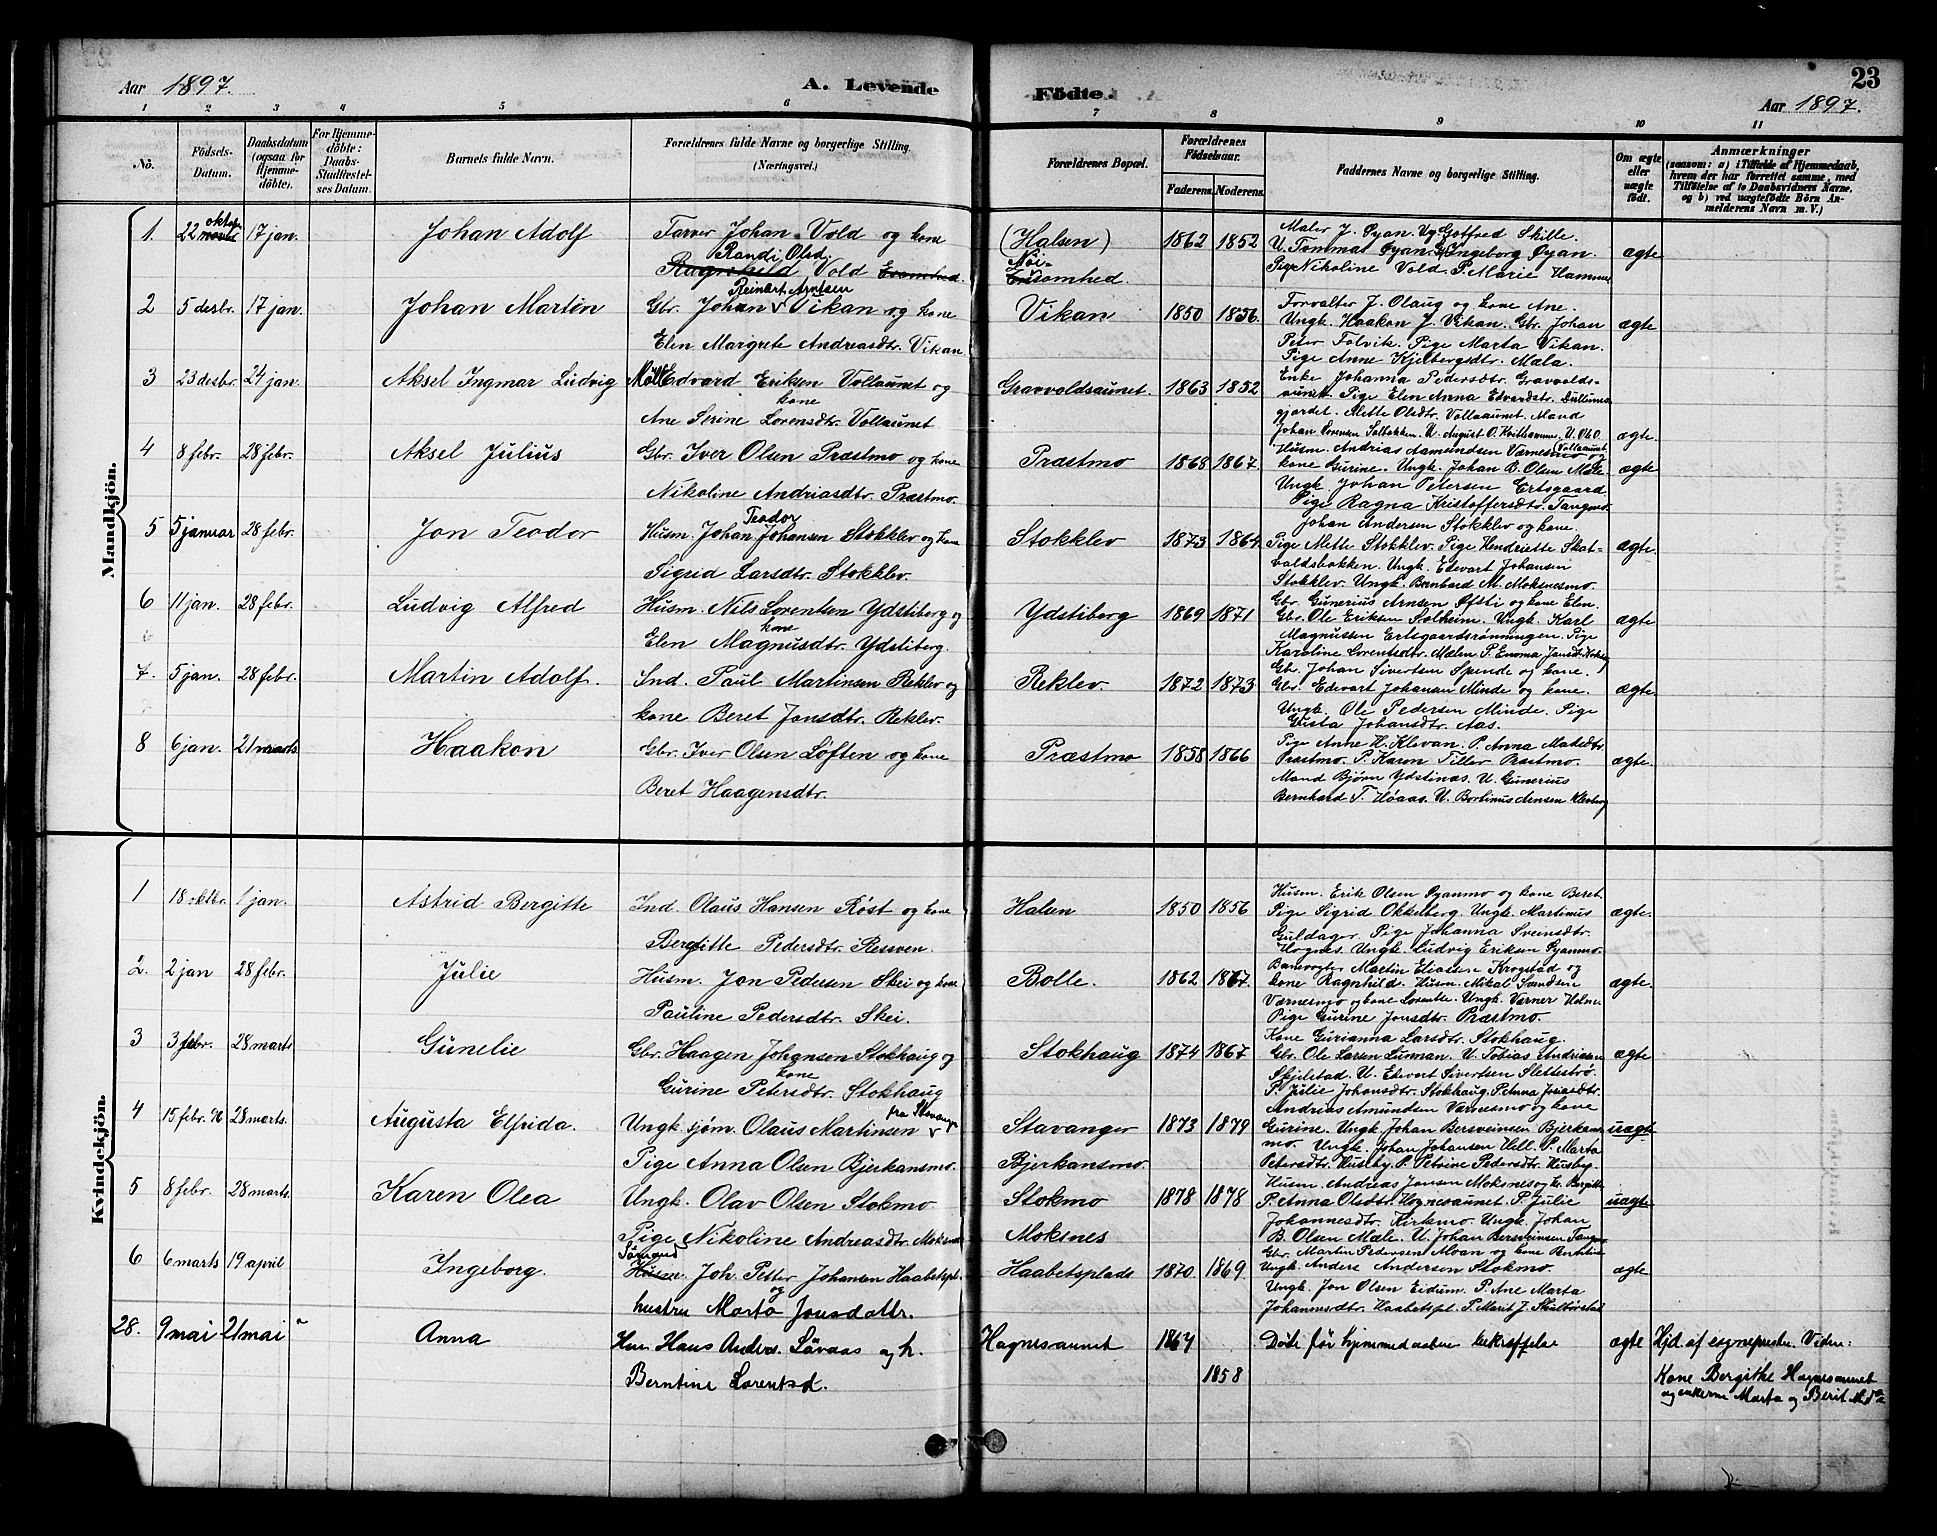 Aar 1897.
A. Levende
1 2 3 4 5 6
No.
Födsels-Datum.
Daabsdatum (ogsaa for Hjemmedöbte).
For Hjemmedöbte: Daabs-Stadfæstelses Datum.
Barnets fulde Navn.
Forældrenes fulde Navne og borgerlige Stilling. (Næringsvei.)
Mandkjön.
1. 22 oktbr 17 jan. Johan Adolf Farver Johan Vold og kone
Randi Olsd.
Ragnhild Vold
Reinert Arntsen
2 5 desbr. 17 jan. Johan Martin Gbr. Johan Vikan og kone
Elen Margrete Andreasdtr. Vikan
3 23 desbr. 24 jan. Aksel Ingmar Ludvig Edvard Eriksen Vollaunet og
kone
Ane Serine Lorensdtr. Vollaunet
4 8 febr. 28 febr. Aksel Julius Gbr. Iver Olsen Præstmo og kone
Nikoline Andriasdtr. Præstmo.
Teodor
5 5 januar 28 febr. Jon Teodor Husm. Johan Johansen Stokklev og kone
Sigrid Larsdtr. Stokklev.
6 11 jan. 28 febr. Ludvig Alfred Husm. Nils Lorentsen Ydstiberg og
kone
Elen Magnusdtr. Ydstiberg.
7. 5 jan. 28 febr. Martin Adolf. Ind. Paul Martinsen Reklev og
kone Beret Jonsdtr. Reklev.
8 6 jan. 21 marts Haakon Gbr. Iver Olsen Loften og kone
Beret Haagensdtr.
Kvindekjön.
1 18 oktbr. 1 jan. Astrid Bergitte Ind. Olaus Hansen Røst og kone
Bergitte Pedersdtr. Ressven.
2. 2 jan 28 febr. Julie Husm. Jon Pedersen Skei og kone
Pauline Pedersdtr. Skei.
3 3 febr. 28 marts Gunelie Gbr. Haagen Johansen Stokhaug og
kone
Gurine Petersdtr. Stokhaug
fra Stavanger
4 15 febr. 28 marts. Augusta Elfrida. Ungk. sjøm. Olaus Martinsen
Pige Anna Olsen Bjerkansmo.
5 8 febr. 28 marts. Karen Olea Ungk. Olav Olsen Stokmo
Pige Nikoline Andreasdtr. Moksnes
Sömand
6 6 marts 19 april Ingeborg. Husm. Joh. Petter Johansen Haabetspl.
og
hustru Marta Jonsdattr.
28. 9 mai 21 mai " Anna Hm. Hans Anders. Låvaas og h.
Berntine Lorentsd.
Födte.
23
Aar 1897.
7 8 9 10 11
Forældrenes Bopæl.
Forældrenes Födselsaar.
Faderens. Moderens.
Faddernes Navne og borgerlige Stilling.
Om ægte eller uægte födt.
Anmærkninger
(saasom: a) i Tilfælde af Hjemmedaab,
hvem der har forrettet samme, med
Tilföielse af to Daabsvidners Navne.
og b) ved uægtefödte Börn Anmelderens Navn m. V.)
(Halsen) 1862 1852 Maler J. Øyan. Ug. Gotfred Skille.
U. Tommas Øyan. Ingeborg Øyan. ægte
Pige Nikoline Vold. P. Marie Hammer
Vikan 1850 1856. Forvalter J. Olaug og kone Ane.
Ungk. Haakon J. Vikan. Gbr. Johan ægte
Peter Folvik. Pige Marta Vikan.
Pige Anne Kjelbergsdtr. Mæla.
Gravvoldsaunet. 1863 1852 Enke Johanna Pedersdtr. Gravvolds-
aunet. Pige Elen Anna Edvardsdtr. Dullums-
gjerdet. Mette Olsdtr. Vollaunet. Mand
Johan Lorensen Solbakken. U. August O. Kvithammer. U. Ob. O. ægte.
Vollaaunet
Præstmo 1868 1867. Husm. Andrias Aamundsen Værnesmo og
kone Gurine. Ungk. Johan B. Olsen Mæle. ægte
Ungk. Johan Petersen Ertsgaard
Pige Ragna Kristoffersdtr. Tangmo.
Stokklev 1873 1864 Johan Andersen Stokklev og kone.
Pige Mette Stokklev. Pige Hendriette Skat-
valdsbakken. Ungk. Edevart Johansen ægte.
Stokklev. Ungk. Bernhard M. Moksnesmo.
Ydstiborg 1869 1871 Gbr. Gunerius Arnsen Øfsti og kone Elen.
Gbr. Ole Eriksen Solheim. Ungk. Karl ægte
Magnussen Ertsgaardsrønningen. Pige
Karoline Lorentsdtr. Mælen P. Emma Jansdtr.
Reklev. 1872 1873 Gbr. Johan Sivertsen Spende og kone.
Gbr. Edevart Johansen Minde og kone. ægte.
Ungk. Ole Pedersen Minde. Pige
Gusta Johansdtr. Aas.
Præstmo 1858 1866 Pige Anne H. Klevan. P. Anna Matsdtr.
Præstmo. P. Karen Tiller Præstmo. ægte.
Mand Bjørn Ydstines. U. Gunerius
Bernhard T. Høaas. U. Bortinus Arnsen Kleberg
Halsen 1850 1856 Husm. Erik Olsen Øyanmo og kone Beret
Pige Sigrid Okkelberg. Ungk. Martinus ægte.
Guldager Pige Johanna Sveinsdtr.
Hognes. Ungk. Ludvig Eriksen Øyanmo.
Bolle. 1862 1867. Banevogter Martin Eliasen Krogstad og
kone Ragnhild. Husm. Mikal Svendsen ægte.
Værnesmo og kone Lorentse. Ungk. Verner Holme
Pige Gurine Jonsdtr. Præstmo.
Stokhaug 1874 1867 Kone Gurianna Larsdtr. Stokhaug.
Gbr. Ole Larsen Lunnan. U. Tobias Andriasen ægte
Skjelstad. U. Edevart Sivertsen Sletteströ.
P. Julie Johansdtr. Stokhaug. P. Anna Joriasdtr.
Stavanger 1873 1879 Andrias Amundsen Værnesmo og kone
Gurine. Ungk. Johan Bersveinsen Bjerkans uægte
Bjerkansmo. mo. Ungk. Johan Johansen Hell. P. Marta
Petersdtr. Husby. P. Petrine Pedersdtr. Husby.
Stokmo 1878 1878 Husm. Andreas Jonsen Moksnes og k. Bergitte
P. Anna Olsdtr. Hognesaunet. P. Julie uægte
Moksnes Johannesdtr. Kirkmo. Ungk. Johan
B. Olsen Mæle. U. Johan Bersveinsen Tangmo
Haabetsplads 1870 1869 Gbr. Martin Pedersen Moan og kone Berntine
Ungk. Anders Andersen Stokmo. ægte
Ungk. Jon Olsen Eidum. P. Ane Marta
Johannesdtr. Haabetspl. P. Marit J. Skultørstad
Hognesaunet 1864 Döde før hjemmedaabens bekræftelse ægte Hjd. af sogneprester. Vidner:
1858 Kone Bergithe Hognesaunet
og enkerne Marta og Berit